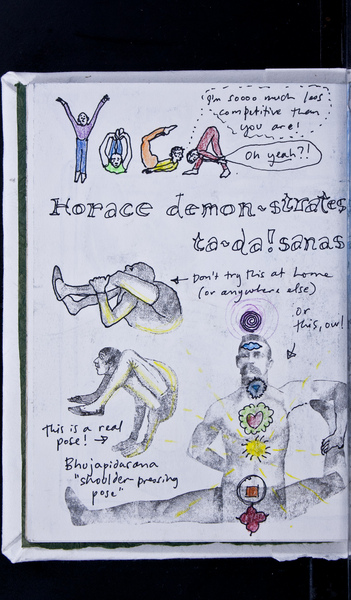 YOGA
I'm soooo much less
competitive than
you are!
Oh yeah?!
Horace demon-strates
ta-da!sanas
Don't try this at home
(or anywhere else)
or
this, ow!
this is a real
pose!
Bhujapidasana
"shoulder-pressing
pose"